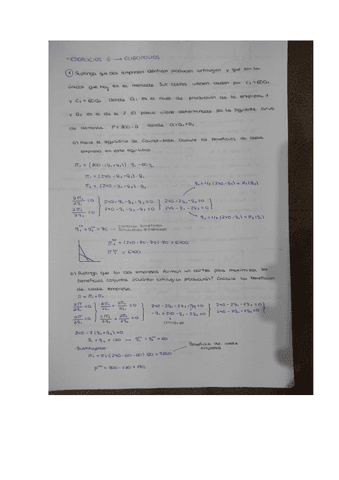 - EJERCICIOS 2 → OLIGOPOLIOS
① Suponga que dos empresas idénticas producen artilugios y que son las
únicas que hay en el mercado. Sus costes vienen dados por C₁ = 60Q₁
y C₂ = 60Q₂, donde Q₁ es el nivel de producción de la empresa 1
y Q₂ es el de la 2. El precio viene determinado por la siguiente curva
de demanda P = 300 - Q donde Q = Q₁ + Q₂
a) Halle el equilibrio de Cournot-Nash. Calcule los beneficios de cada
empresa en este equilibrio.
π₁ = (300 - q₁ - q₂) · q₁ - 60q₁
π₁ = (240 - q₁ - q₂) · q₁
π₂ = (240 - q₁ - q₂) · q₂
240 - 2q₁ - q₂ = 0
240 - q₁ - 2q₂ = 0
q₁ = 1/2 (240 - q₂) = R₁(q₂)
q₂ = 1/2 (240 - q₁) = R₂(q₁)
= 80
= (240 - 80 - 80) · 80 = 6400
= 6400
b) Suponga que las dos empresas forman un cártel para maximizar los
beneficios conjuntos. ¿Cuántos artilugios producirán? Calcule los beneficios
de cada empresa.
π = π₁ + π₂
240 - 2q₁ - 2q₂ = 0
240 - 2q₁ - 2q₂ = 0
240 - 2(q₁ + q₂) = 0
q₁ + q₂ = 120 → = 60
- Sustituyendo
π₁ = π₂ = (240 - 60 - 60) 60 = 7200
Beneficio de cada
empresa
= 300 - 120 = 180